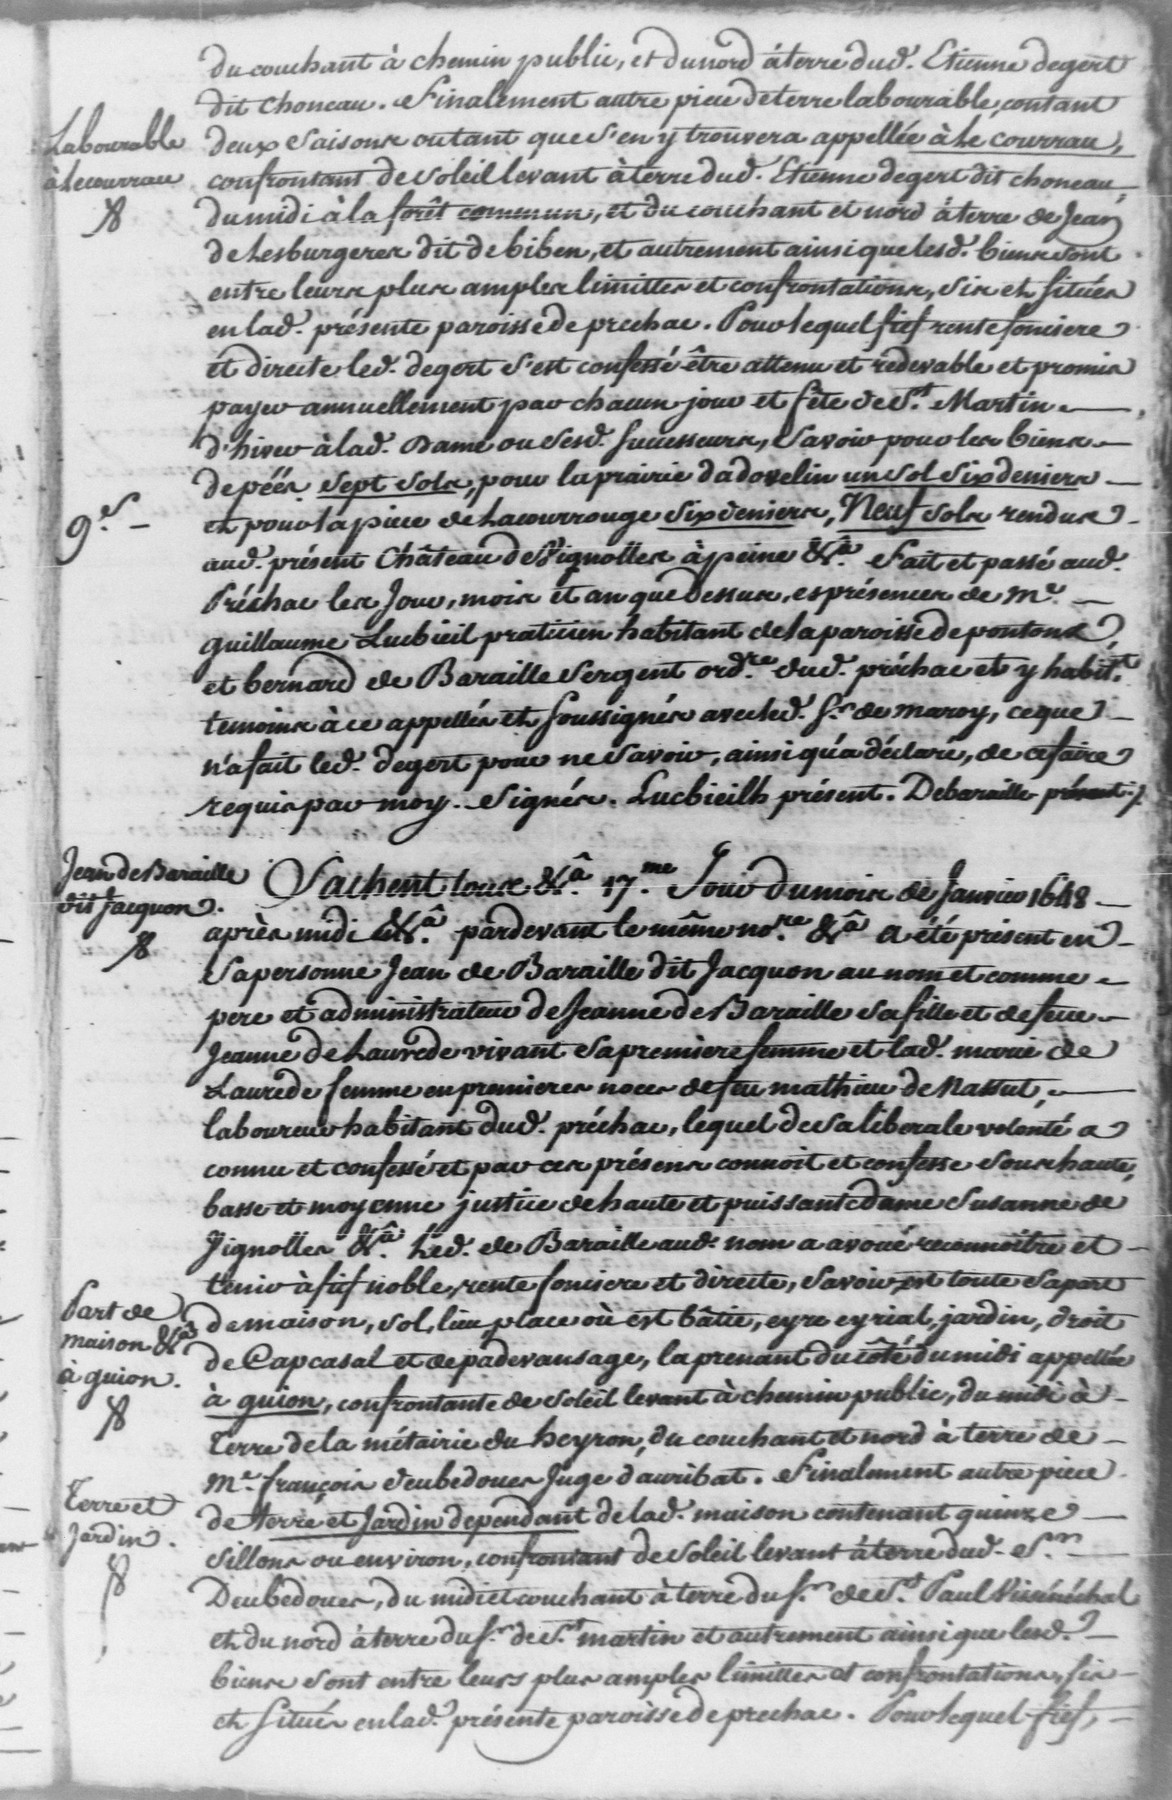 du couchant à chemin public, et du nord à terre dud. Etienne degert
dit choneau. Finalement autre piece de terre labourable, contant
Labourable
à Lecourrau
deux saisons ou tant que s'en y trouvera appellée à Le courrau,
confrontant de soleil levant à terre dud. Etienne degert dit choneau,
du midi à la forêt commun, et du couchant et nord à terre de Jean
de Lesburgeres dit de biben, et autrement ainsi que lesd. biens sont
entre leurs plus amples limittes et confrontations, sis et situés
en lad. présente paroisse de prechac. Pour lequel fief rente fonciere
et directe led. degert s'est confessé être attenu et redevable et promis
payer annuellement par chacun jour et fête de St. Martin
d'hiver à lad. Dame ou sesd. successeurs, savoir pour les biens
de péés sept sols, pour la prairie dadovelin un sol six deniers
9.s
et pour la piece de Lacourrouge six deniers, Neuf sols rendus
aud. présent Château de Vignolles à peine &a. Fait et passé aud.
Préchac les Jour, mois et an que dessus, es présences de Me.
guillaume Lucbieil praticien habitant de la paroisse de pontons
et bernard de Baraille sergent ordre. dud. préchac et y habitt.
temoins à ce appellés et soussignés avec led. Sr. de maroy, ce que
n'a fait led. degert pour ne savoir, ainsi qu'a déclaré, de ce faire
requis par moy. Signés. Lucbieilh présent. Debaraille présent.
Jean de Baraille
dit Jacquon.
Sachent tous &a. 17.me Jour du mois de Janvier 1648
après midi &a. pardevant le même no.re &a a été présent en
sa personne Jean de Baraille dit Jacquon au nom et comme
pere et administrateur de Jeanne de Baraille sa fille et de feue
Jeanne de Laurede vivant sa premiere femme et lad. marie de
Laurede femme en premieres noces de feu mathieu de Nassut,
laboureur habitant dud. préchac, lequel de sa liberale volonté a
connu et confessé et par ces présens connoit et confesse sous haute,
basse et moyenne justice de haute et puissante dame Susanne de
Vignolles &a. Led. de Baraille aud. nom a avoué reconnoitre et
tenir à fief noble, rente fonciere et directe, savoir est toute sa part
Part de
maison &a
à guion.
de maison, sol, lieu, place où est bâtie, eyre eyrial, jardin, droit
de Capcasal et de padevansage, la prenant du côté du midi appellée
à guion, confrontante de soleil levant à chemin public, du midi à
Terre de la métairie du heyron, du couchant et nord à terre de
Me. françois deubedoues Juge d'auribat. Finalement autre piece
Terre et
Jardin.
de terre et Jardin dependant de lad. maison contenant quinze
sillons ou environ, confrontant de soleil levant à terre dud. Sr.
Deubedoues, du midi et couchant à terre du Sr. de St. Paul Visénéchal
et du nord à terre du Sr. de St. martin et autrement ainsi que lesd.
biens sont entre leurs plus amples limittes et confrontations, sis
et situés en lad. présente paroisse de prechac. Pour lequel fief,